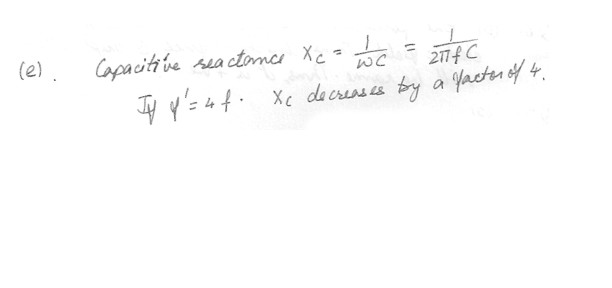 (e). Capacitive reactance Xc = 1/ωC = 1/2πfC
If f' = 4f. Xc decreases by a factor of 4.